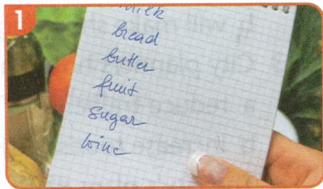 1
milk
bread
butter
fruit
sugar
wine